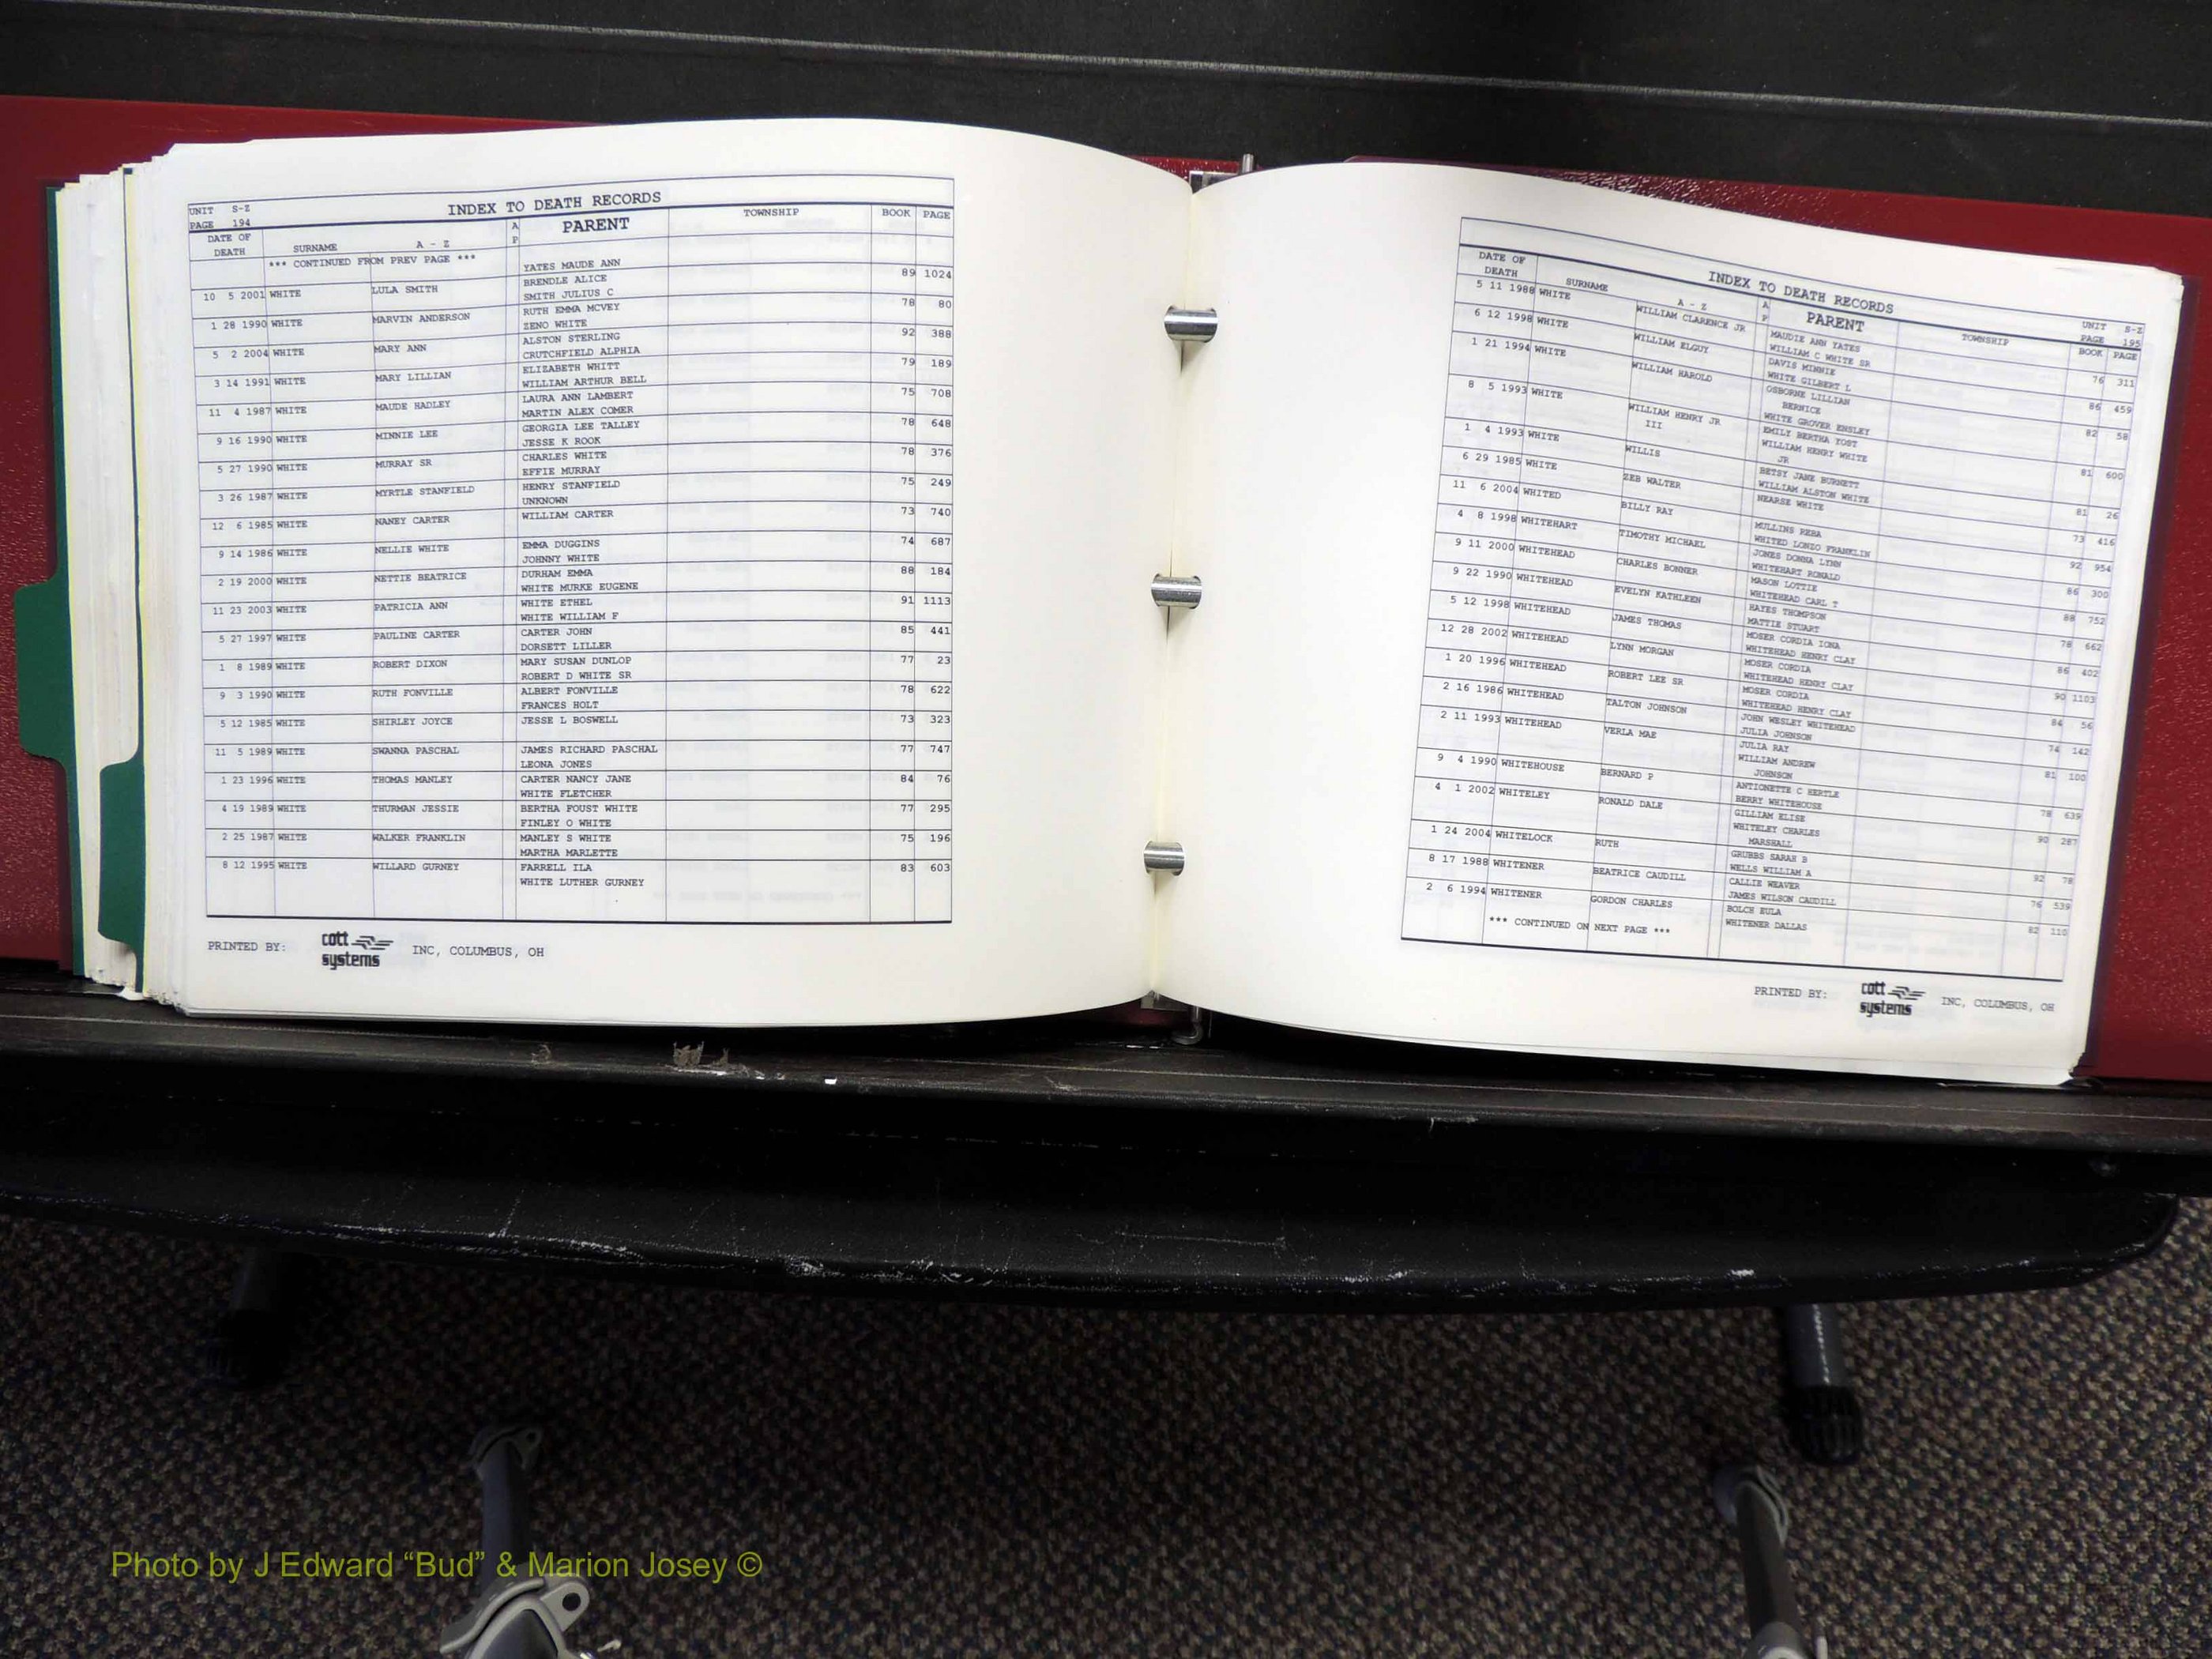 UNIT S-Z
PAGE 194
INDEX TO DEATH RECORDS
DATE OF DEATH SURNAME A - Z AP PARENT TOWNSHIP BOOK PAGE
*** CONTINUED FROM PREV PAGE *** YATES MAUDE ANN
10 5 2001 WHITE LULA SMITH BRENDLE ALICE 89 1024
SMITH JULIUS C
1 28 1990 WHITE MARVIN ANDERSON RUTH EMMA MCVEY 78 80
ZENO WHITE
5 2 2004 WHITE MARY ANN ALSTON STERLING 92 388
CRUTCHFIELD ALPHIA
3 14 1991 WHITE MARY LILLIAN ELIZABETH WHITT 79 189
WILLIAM ARTHUR BELL
11 4 1987 WHITE MAUDE HADLEY LAURA ANN LAMBERT 75 708
MARTIN ALEX COMER
9 16 1990 WHITE MINNIE LEE GEORGIA LEE TALLEY 78 648
JESSE K ROOK
5 27 1990 WHITE MURRAY SR CHARLES WHITE 78 376
EFFIE MURRAY
3 26 1987 WHITE MYRTLE STANFIELD HENRY STANFIELD 75 249
UNKNOWN
12 6 1985 WHITE NANEY CARTER WILLIAM CARTER 73 740
9 14 1986 WHITE NELLIE WHITE EMMA DUGGINS 74 687
JOHNNY WHITE
2 19 2000 WHITE NETTIE BEATRICE DURHAM EMMA 88 184
WHITE MURKE EUGENE
11 23 2003 WHITE PATRICIA ANN WHITE ETHEL 91 1113
WHITE WILLIAM F
5 27 1997 WHITE PAULINE CARTER CARTER JOHN 85 441
DORSETT LILLER
1 8 1989 WHITE ROBERT DIXON MARY SUSAN DUNLOP 77 23
ROBERT D WHITE SR
9 3 1990 WHITE RUTH FONVILLE ALBERT FONVILLE 78 622
FRANCES HOLT
5 12 1985 WHITE SHIRLEY JOYCE JESSE L BOSWELL 73 323
11 5 1989 WHITE SWANNA PASCHAL JAMES RICHARD PASCHAL 77 747
LEONA JONES
1 23 1996 WHITE THOMAS MANLEY CARTER NANCY JANE 84 76
WHITE FLETCHER
4 19 1989 WHITE THURMAN JESSIE BERTHA FOUST WHITE 77 295
FINLEY O WHITE
2 25 1987 WHITE WALKER FRANKLIN MANLEY S WHITE 75 196
MARTHA MARLETTE
8 12 1995 WHITE WILLARD GURNEY FARRELL ILA 83 603
WHITE LUTHER GURNEY
PRINTED BY: cott systems INC, COLUMBUS, OH
INDEX TO DEATH RECORDS
UNIT S-Z
PAGE 195
DATE OF DEATH SURNAME A - Z AP PARENT TOWNSHIP BOOK PAGE
5 11 1988 WHITE WILLIAM CLARENCE JR MAUDIE ANN YATES 76 311
WILLIAM C WHITE SR
6 12 1998 WHITE WILLIAM ELGUY DAVIS MINNIE 86 459
WHITE GILBERT L
1 21 1994 WHITE WILLIAM HAROLD OSBORNE LILLIAN 82 58
BERNICE
WHITE GROVER ENSLEY
8 5 1993 WHITE WILLIAM HENRY JR EMILY BERTHA YOST 81 600
III WILLIAM HENRY WHITE
JR
1 4 1993 WHITE WILLIS BETSY JANE BURNETT 81 26
WILLIAM ALSTON WHITE
6 29 1985 WHITE ZEB WALTER NEARSE WHITE 73 416
11 6 2004 WHITED BILLY RAY MULLINS REBA 92 954
WHITED LONZO FRANKLIN
4 8 1998 WHITEHART TIMOTHY MICHAEL JONES DONNA LYNN 86 300
WHITEHART RONALD
9 11 2000 WHITEHEAD CHARLES BONNER MASON LOTTIE 88 752
WHITEHEAD CARL T
9 22 1990 WHITEHEAD EVELYN KATHLEEN HAYES THOMPSON 78 662
MATTIE STUART
5 12 1998 WHITEHEAD JAMES THOMAS MOSER CORDIA IONA 86 402
WHITEHEAD HENRY CLAY
12 28 2002 WHITEHEAD LYNN MORGAN MOSER CORDIA 90 1103
WHITEHEAD HENRY CLAY
1 20 1996 WHITEHEAD ROBERT LEE SR MOSER CORDIA 84 56
WHITEHEAD HENRY CLAY
2 16 1986 WHITEHEAD TALTON JOHNSON JOHN WESLEY WHITEHEAD 74 142
JULIA JOHNSON
2 11 1993 WHITEHEAD VERLA MAE JULIA RAY 81 100
WILLIAM ANDREW
JOHNSON
9 4 1990 WHITEHOUSE BERNARD P ANTIONETTE C HERTLE 78 639
BERRY WHITEHOUSE
4 1 2002 WHITELEY RONALD DALE GILLIAM ELISE 90 287
WHITELEY CHARLES
MARSHALL
1 24 2004 WHITELOCK RUTH GRUBBS SARAH B 92 78
WELLS WILLIAM A
8 17 1988 WHITENER BEATRICE CAUDILL CALLIE WEAVER 76 539
JAMES WILSON CAUDILL
2 6 1994 WHITENER GORDON CHARLES BOLCH EULA 82 110
WHITENER DALLAS
*** CONTINUED ON NEXT PAGE ***
PRINTED BY: cott systems INC, COLUMBUS, OH
Photo by J Edward “Bud” & Marion Josey ©